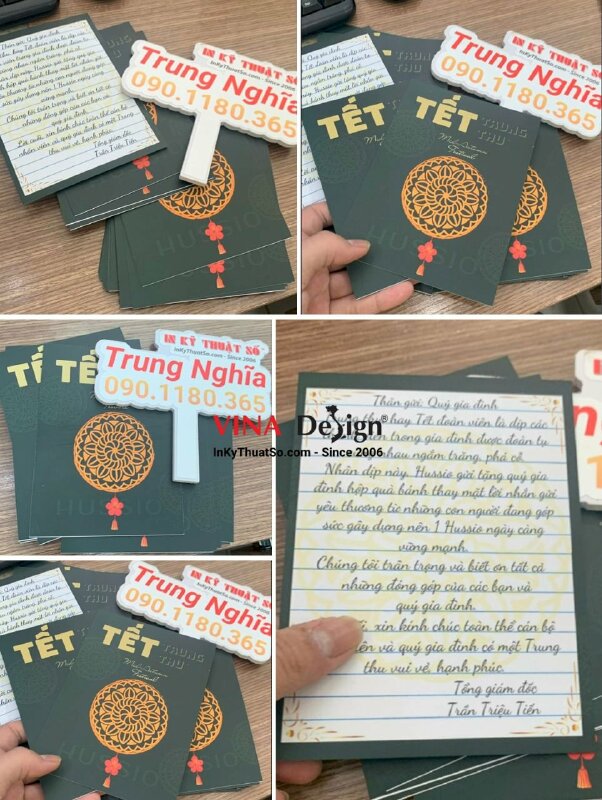 Tổng giám đốc
Trần Triệu Tiến
IN KỸ THUẬT SỐ
InKyThuatSo.com - Since 2006
Trung Nghĩa
090.1180.365
HUSSIO
IN KỸ THUẬT SỐ
InKyThuatSo.com - Since 2006
Trung Nghĩa
090.1180.365
TẾT
TẾT TRUNG THU
Mid-Autumn
Festival
HUSSIO
TẾT
IN KỸ THUẬT SỐ
InKyThuatSo.com - Since 2006
Trung Nghĩa
090.1180.365
HUSSIO
VINA Design
InKyThuatSo.com - Since 2006
Thân gửi: Quý gia đình
thu hay Tết đoàn viên là dịp các
trong gia đình được đoàn tụ
nhau ngắm trăng, phá cỗ.
Nhân dịp này, Hussio gửi tặng quý gia
đình hộp quà bánh thay mặt lời nhắn gửi
yêu thương từ những con người đang góp
sức gây dựng nên 1 Hussio ngày càng
vững mạnh.
Chúng tôi trân trọng và biết ơn tất cả
những đóng góp của các bạn và
quý gia đình.
xin kính chúc toàn thể cán bộ
viên và quý gia đình có một Trung
thu vui vẻ, hạnh phúc.
Tổng giám đốc
Trần Triệu Tiến
IN KỸ THUẬT SỐ
InKyThuatSo.com - Since 2006
Trung Nghĩa
090.1180.365
TẾT
TẾT TRUNG THU
Mid-Autumn
Festival
HUSSIO